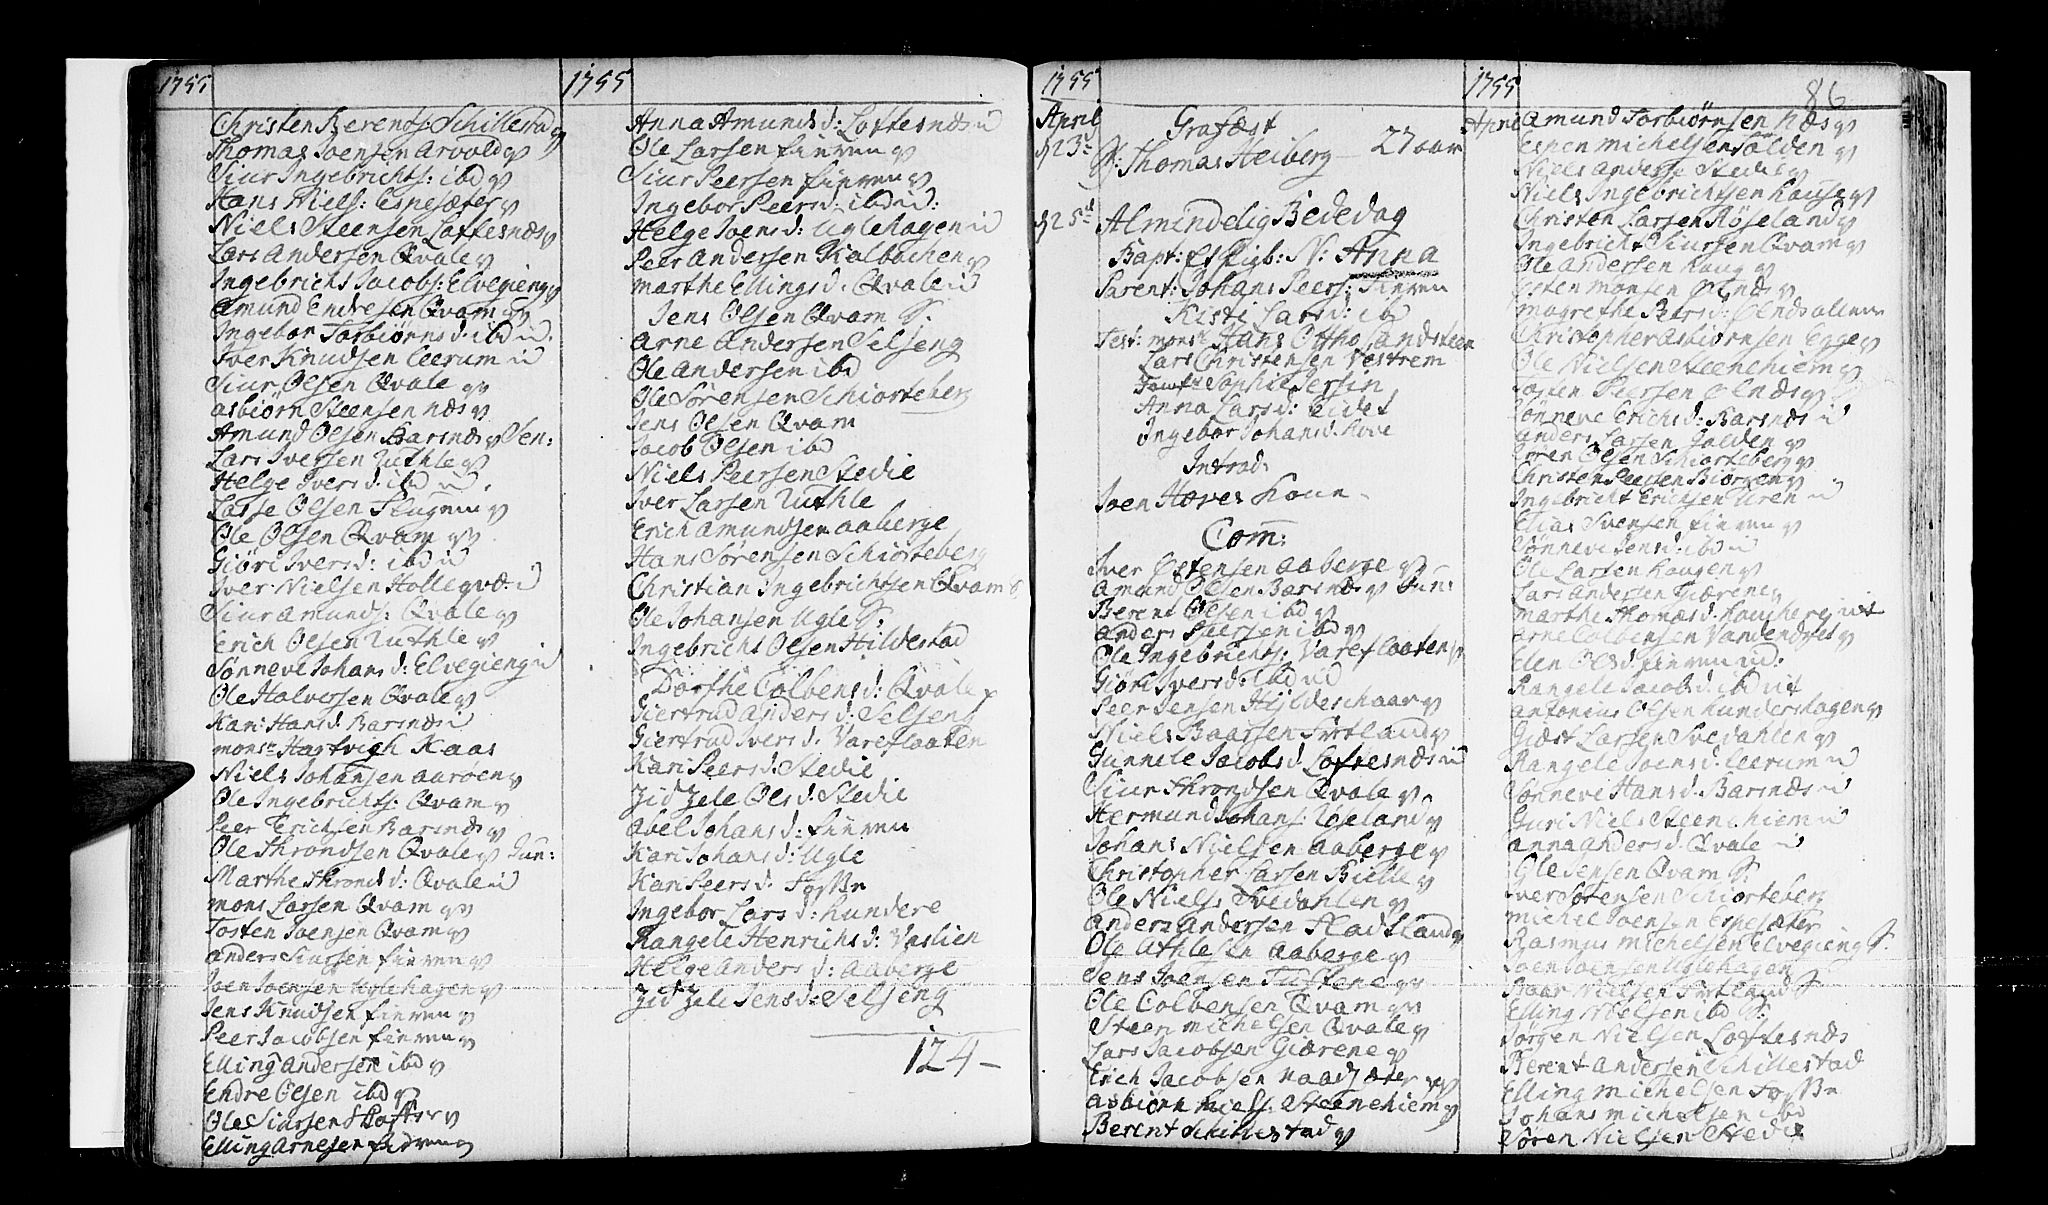 1755
Christen Berents: Schillestad
Thomas Joensen Arvold
Siur Ingebrichts: ibd
Hans Niels: Espesæter
Niels Steensen Loftesnæs
Lars Andersen Qvale
Ingebricht Jacobs: Elvegieng
Amund Endresen Qvam
Ingebor Torbiørns d: ibd
Iver Knudsen Leerum
Siur Olsen Qvale
Asbiørn Steensen Næs
Amund Olsen Barsnæs Sen:
Lars Iversen Uthle
Helge Ivers d: ibd
Lasse Olsen Flugem
Ole Olsen Qvam
Giøri Ivers d: ibd
Iver Nielsen Holleqvæ
Siur Amunds: Qvale
Erich Olsen Uthle
Sønneve Johans d: Elvegieng
Ole Halversen Qvale
Kari Hans d: Barsnæs
monsr Hartvigh Kaas
Niels Johansen Aarøen
Ole Ingebrichts: Qvam
Peer Erichsen Barsnæs
Ole Throndsen Qvale Jun:
Marthe Thronds d: Qvale
Mons Larsen Qvam
Tosten Joensen Qvam
Anders Siursen Finven
Joen Joensen Uglehagen
Jens Knudsen Finven
Peer Jacobsen Finven
Elling Andersen ibd
Endre Olsen ibd
Ole Siursen
Elling Arnesen
1755
Anna Amunds d: Loftesnæs
Ole Larsen Finven
Siur Peersen Finven
Ingebor Peers d: ibd
Helge Joens d: Uglehagen
Peer Andersen Kalbachen
Marthe Ellings d. Qvale
Jens Olsen Qvam S.
Arne Andersen Selseng
Ole Andersen ibd
Ole Sørensen Schiorteberg
Jens Olsen Qvam
Jacob Olsen ibd
Niels Peersen Stedie
Iver Larsen Uthle
Erich Amundsen Aaberge
Hans Sørensen Schiorteberg
Christian Ingebrichtsen Qvam
Ole Johansen Ugle S.
Ingebricht Olsen Hildestad
Dorthe Colbens d: Qvale
Giertrud Anders d: Selseng
Giertrud Ivers d. Vareflaaten
Kari Peers d: Stedie
Zidzele Ols d: Stedie
Abel Johans d: Finven
Kari Johans d: Ugle
Kari Peers d.
Ingebor Lars d: Hundere
Rangele Henrichs d: Veslien
Helge Anders d: Aaberge
Zidzele Jens d: Selseng
124 –
1755
April
d 23
Grafæst
S: Thomas Heiberg – 27 aar
d 25
Almindelig Bededag
Bapt: N: Anna
Parent: Johans Peers: Finven
Kisti Lars d: ibd
Test: monsr Hans Ottho Sandsteen
Lars Christensen Vestrem
Jomfr Sophie Jersin
Anna Lars d: Eidet
Ingebor Johans d: Hove
Introd:
Joen Hoves Kone –
Com:
Iver Ostensen Aaberge
Amund Olsen Barsnæs Jun:
Berent Olsen ibd
Anders Peersen ibd
Ole Ingebrichts: Vareflaaten
Giøri Ivers d: ibd
Peer Jensen Hyldeschaar
Niels Baarsen
Gunnele Jacobs d Loftesnæs
Siur Throndsen Qvale
Hermund Johans:
Johans Nielsen Aaberge
Christopher Larsen Bielle
Ole Niels: Svedahlen
Anders Andersen Fladeland
Ole Athlesen Aaberge
Jens Joensen
Ole Colbensen Qvam
Steen Michelsen Qvale
Lars Jacobsen Giærene
Erich Jacobsen Naadsæter
Asbiørn Niels: Steenehiem
Berent Schillestad
1755
86
April
Amund Torbiørnsen Næs
Espen Michelsen Folden
Niels Anders: Stedie
Niels Ingebrichtsen Hauge
Christen Larsen Røseland
Ingebricht Siursen Qvam
Ole Andersen Haug
Tosten Monsen Ølnæs
Magrethe Beers d:
Christopher Asbiørnsen Egge
Ole Nielsen Steenehiem
Tosten Peersen Ølnæs
Sønneve Erichs d: Barsnæs
Anders Larsen Folden
Søren Olsen Schiorteberg
Christen Peersen Biørgen
Ingebricht Erichsen Uren
Elias Svensen Finven
Sønneve Jens d: ibd
Ole Larsen Haugen
Lars Andersen Giærene
Marthe Thomas d: Houberg
Arne Colbensen
Elen Ols d: Finven
Rangele Jacobs d: ibd
Antonius Olsen Hundershagen
Giøst Larsen Svedahlen
Rangele Joens d: Leerum
Sønneve Hans d: Barsnæs
Guri Niels d. Steenehiem
Anna Anders d. Qvale
Ole Jensen Qvam S:
Iver Sørensen Schiorteberg
Michel Joensen Espesæter
Rasmus Michelsen Elvegieng S.
Joen Joensen Uglehagen
Baar Nielsen
Elling Nielsen ibd S:
Jørgen Nielsen Loftesnæs
Berent Andersen Schillestad
Elling Michelsen
Johans Michelsen ibd
Søren Nielsen Stedie